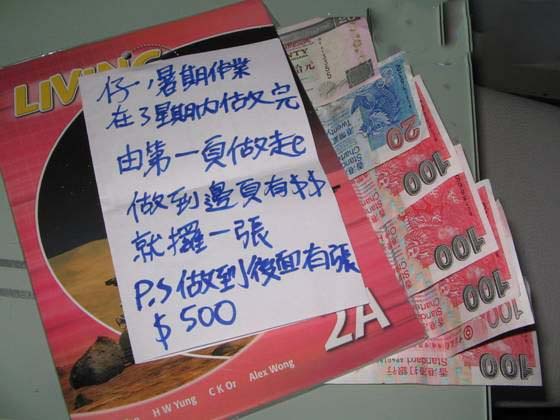 LIVING
仔,暑期作業
在3星期內做完
由第一頁做起
做到邊頁有$$
就攞一張
P.S 做到後面有張
$500
2A
H W Yung C K Or Alex Wong
20
100
100
100
100
香港渣打銀行
Standard